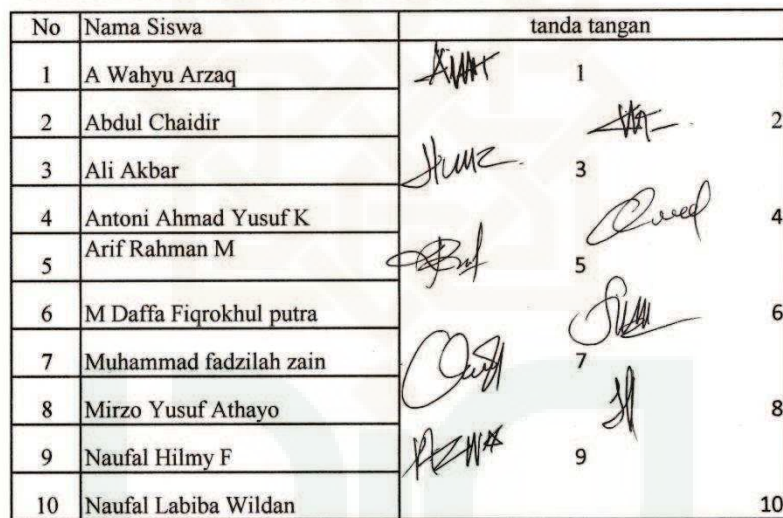 No Nama Siswa tanda tangan
1 A Wahyu Arzaq 1
2 Abdul Chaidir 2
3 Ali Akbar 3
4 Antoni Ahmad Yusuf K 4
5 Arif Rahman M 5
6 M Daffa Fiqrokhul putra 6
7 Muhammad fadzilah zain 7
8 Mirzo Yusuf Athayo 8
9 Naufal Hilmy F 9
10 Naufal Labiba Wildan 10